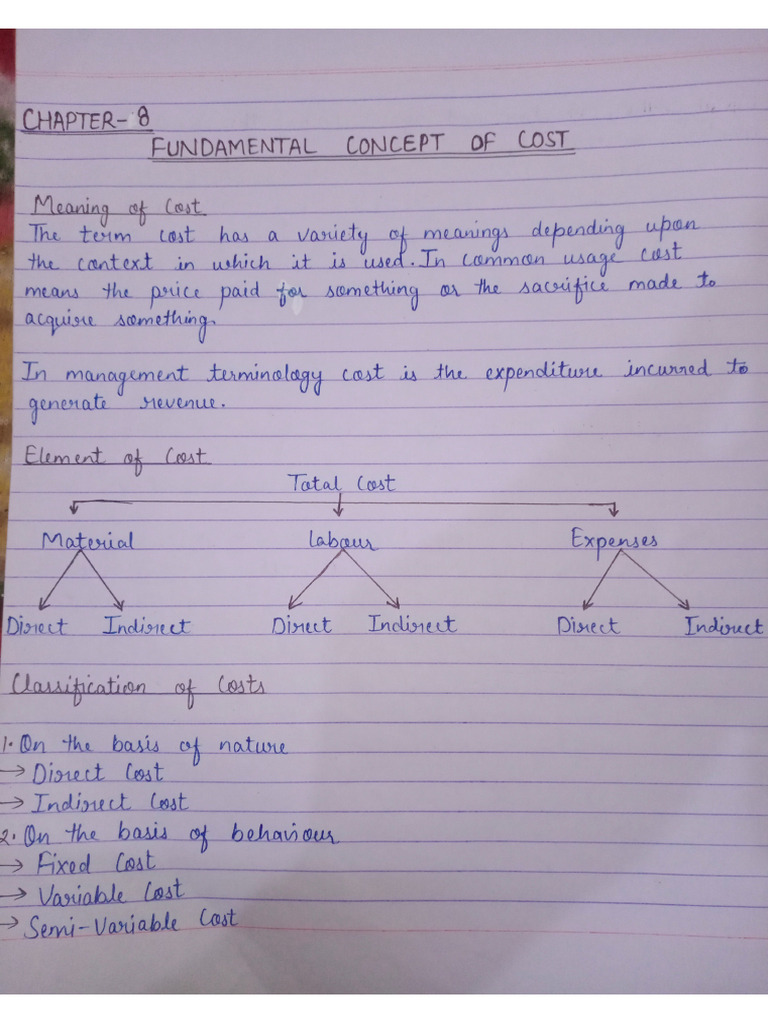 CHAPTER-8
FUNDAMENTAL CONCEPT OF COST
Meaning of Cost
The term cost has a variety of meanings depending upon
the context in which it is used. In common usage cost
means the price paid for something or the sacrifice made to
acquire something.
In management terminology cost is the expenditure incurred to
generate revenue.
Element of Cost
Total Cost
Material Labour Expenses
Direct Indirect Direct Indirect Direct Indirect
Classification of Costs
1. On the basis of nature
→ Direct Cost
→ Indirect Cost
2. On the basis of behaviour
→ Fixed Cost
→ Variable Cost
→ Semi-Variable Cost